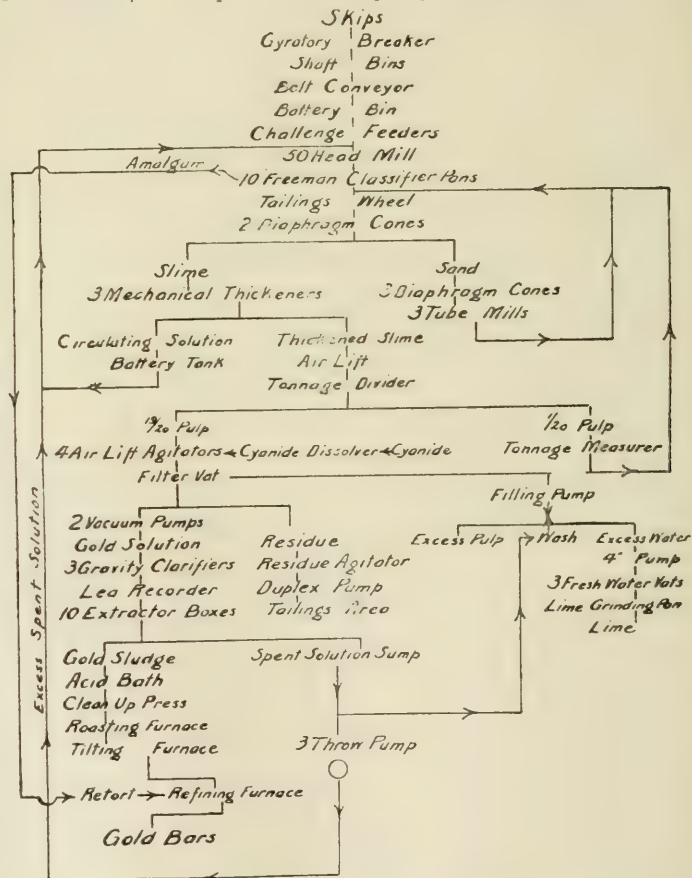 Skips
Gyratory Breaker
Shaft Bins
Belt Conveyor
Battery Bin
Challenge Feeders
50 Head Mill
Amalgum
10 Freeman Classifier Pans
Tailings Wheel
2 Diaphragm Cones
Slime
3 Mechanical Thickeners
Sand
3 Diaphragm Cones
3 Tube Mills
Circulating Solution
Battery Tank
Thickened Slime
Air Lift
Tonnage Divider
19/20 Pulp
4 Air Lift Agitators Cyanide Dissolver Cyanide
Filter Vat
1/20 Pulp
Tonnage Measurer
Filling Pump
2 Vacuum Pumps
Gold Solution
3 Gravity Clarifiers
Lea Recorder
10 Extractor Boxes
Residue
Residue Agitator
Duplex Pump
Tailings Area
Excess Pulp
Wash
Excess Water
4" Pump
3 Fresh Water Vats
Lime Grinding Pan
Lime
Excess Spent Solution
Gold Sludge
Acid Bath
Clean Up Press
Roasting Furnace
Tilting Furnace
Spent Solution Sump
3 Throw Pump
Retort Refining Furnace
Gold Bars